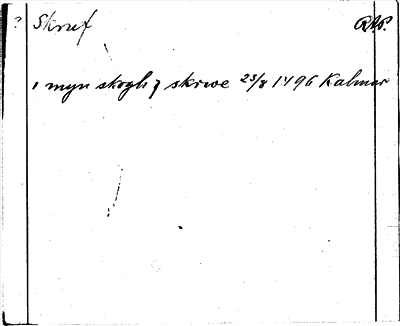 ? Skruf RAP.
i myn skogh j skrwe 23/8 1496 Kalmar